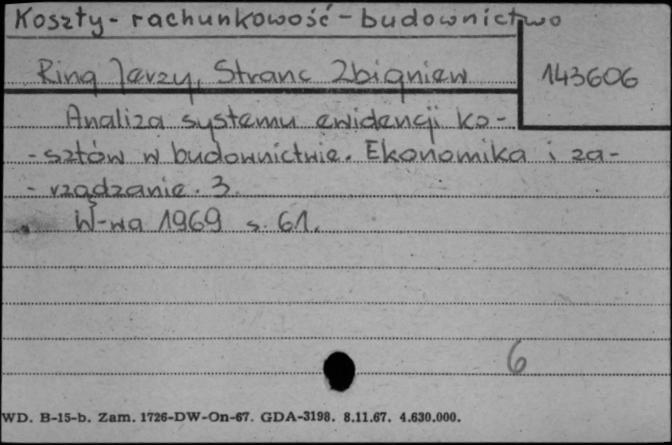 Koszty - rachunkowość - budownictwo
Ring Jerzy, Stranc Zbigniew
143606
Analiza systemu ewidencji ko-
- sztów w budownictwie. Ekonomika i za-
- rządzanie. 3.
W-wa 1969 s. 61.
6
WD. B-15-b. Zam. 1726-DW-On-67. GDA-3198. 8.11.67. 4.630.000.